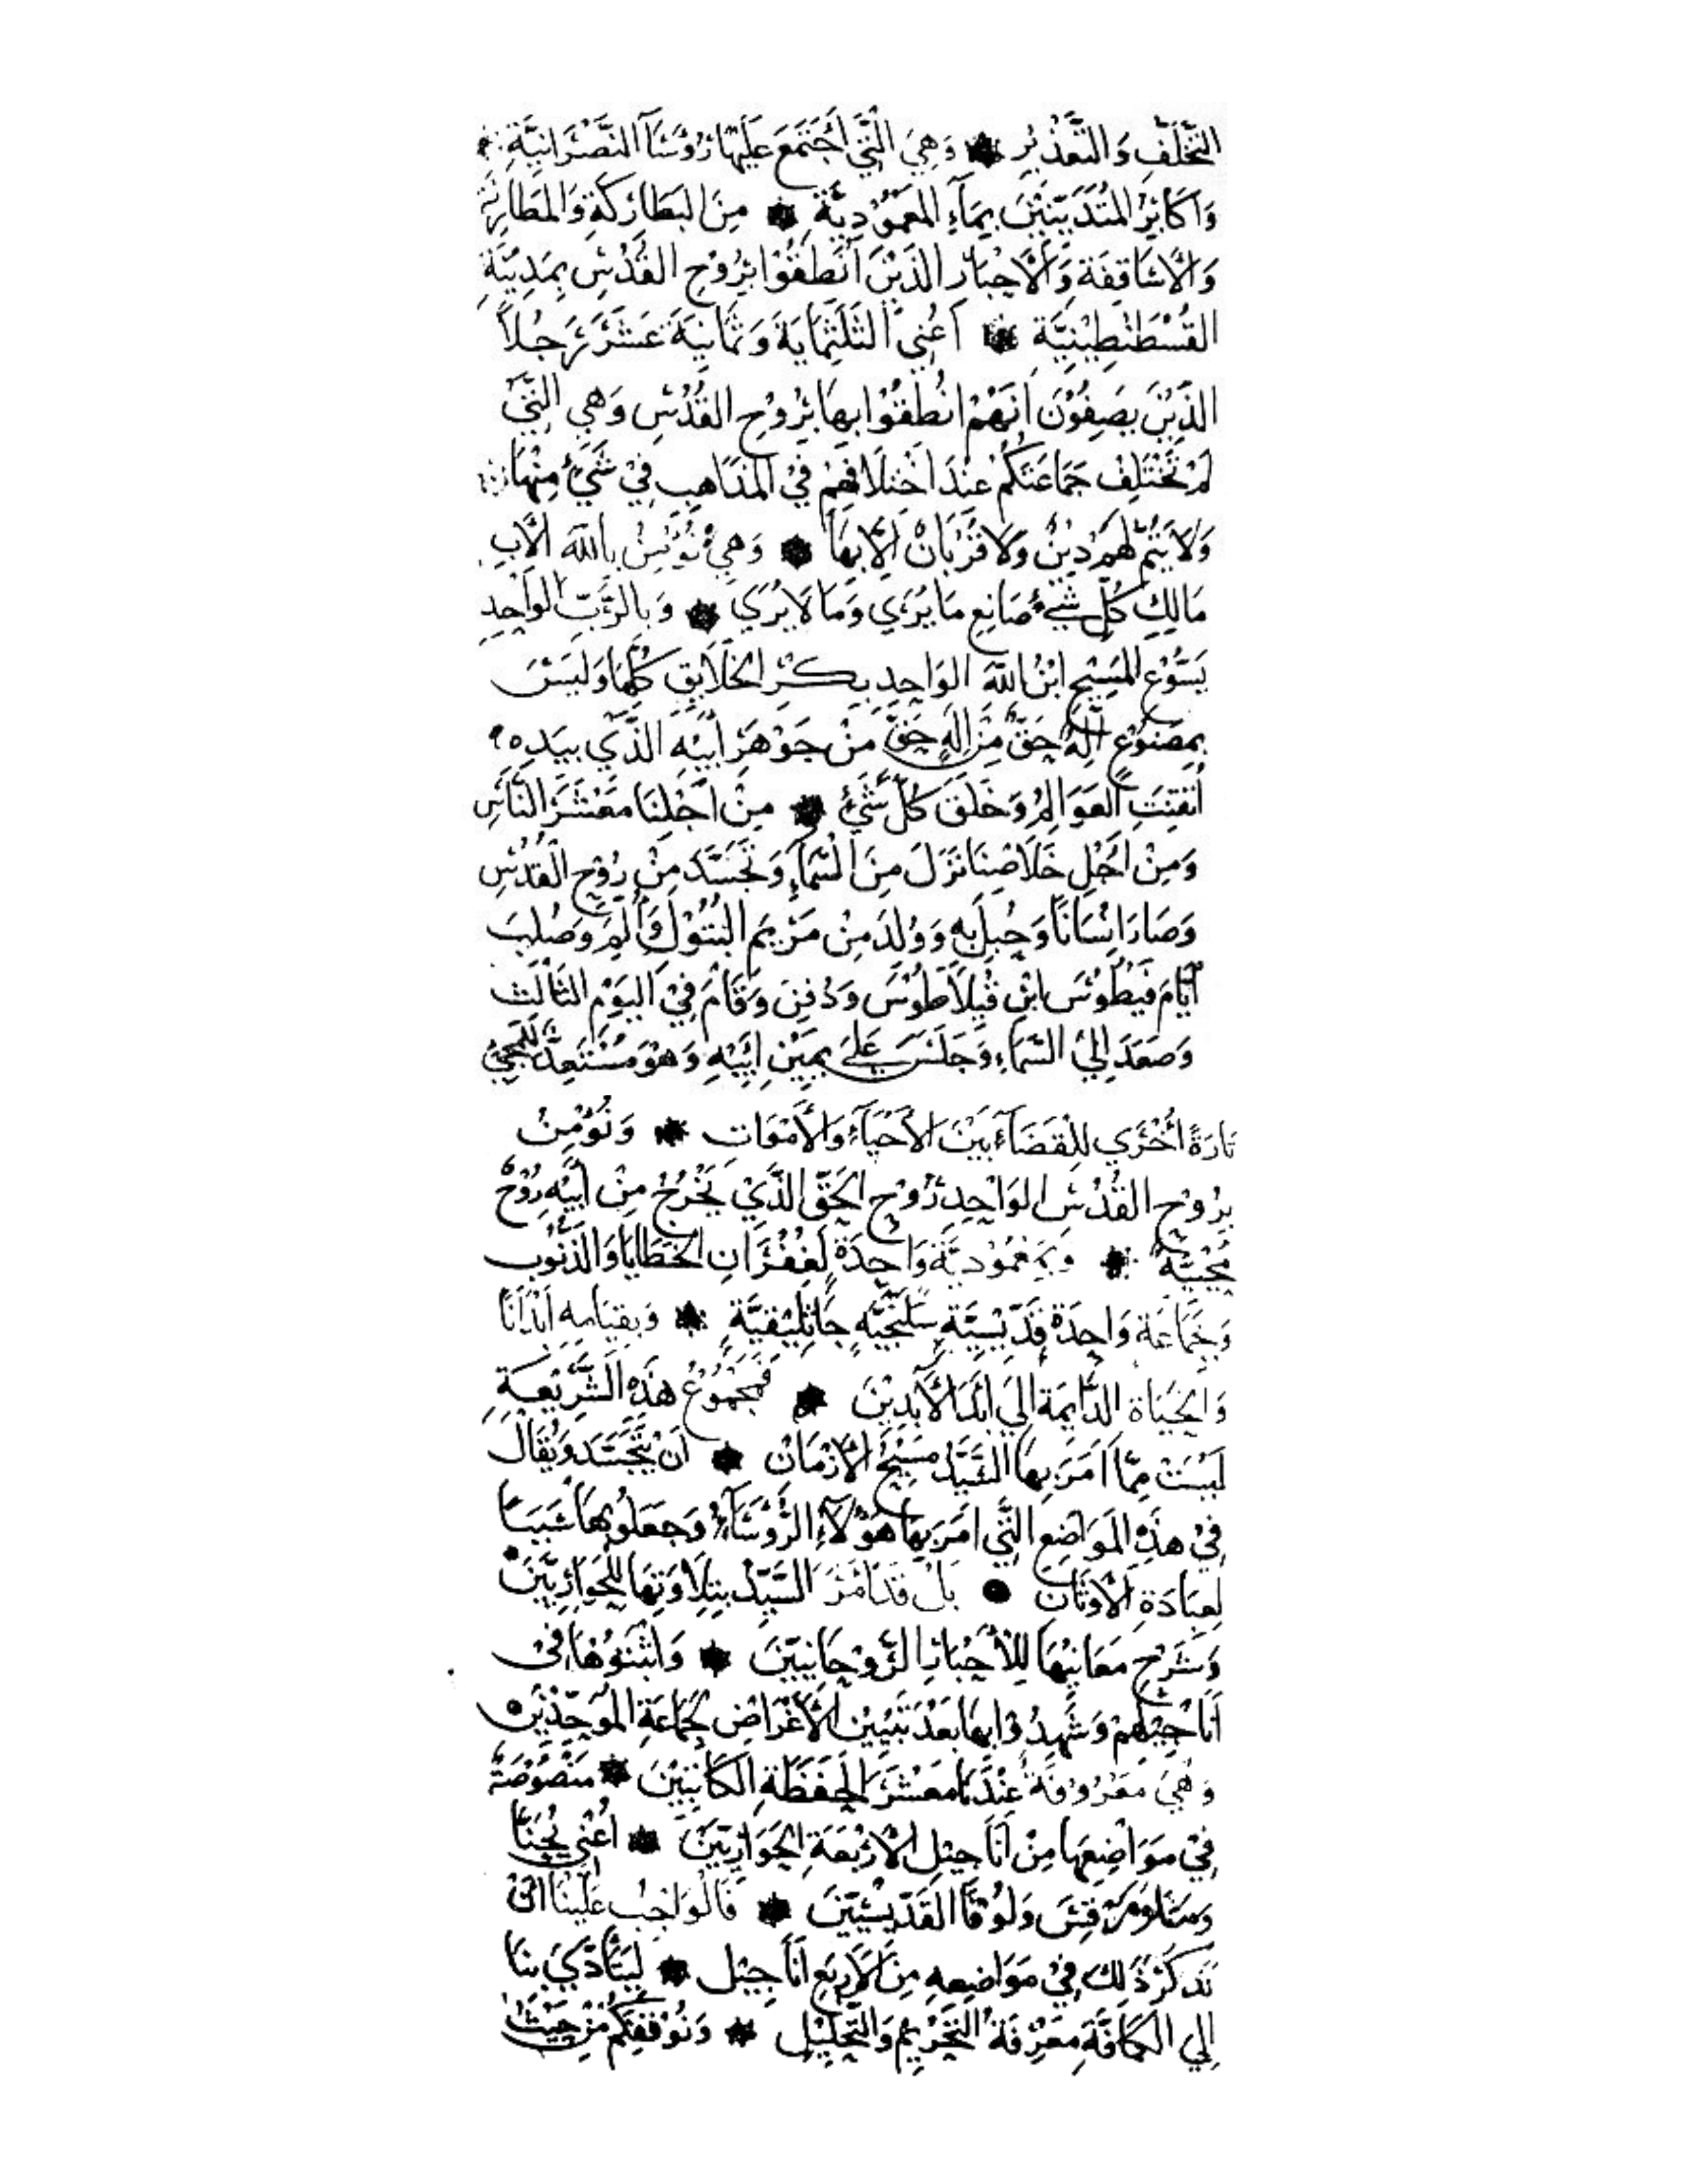 التَّخَلُّفِ وَالتَّعْذِيرِ * وَهِيَ الَّتِي أَجْتَمَعَ عَلَيْهَا رُؤَسَآ النَّصْرَانِيَّةِ
وَأَكَابِرُ المُتَدَيِّنِينَ بِمَآءِ المَعْمُودِيَّةِ * مِنَ البَطَارِكَةِ وَالمَطَارِنَةِ
وَالأَسَاقِفَةِ وَالأَحْبَارِ الَّذِينَ أَنْطَقُوا بِرُوحِ القُدُسِ بِمَدِينَةِ
القُسْطَنْطِينِيَّةِ * أَعْنِي الثَّلَثْمَايَةَ وَثَمَانِيَةَ عَشَرَ رَجُلاً
الَّذِينَ يَصِفُونَ أَنَهُمْ انْطَقُوا بِهَا بِرُوحِ القُدُسِ وَهِيَ الَّتِي
لَمْ تَخْتَلِفْ جَمَاعَتكُمْ عِنْدَ اخْتِلَافِهِمْ فِي المَذَاهِبِ فِي شَيْءٍ مِنْهَا
وَلَا يَتِمُّ لَهُمْ دِينٌ وَلَا قُرْبَانٌ إِلَّا بِهَا * وَهِيَ نُؤْمِنُ بِاللَّهِ الأَبِ
مَالِكِ كُلِّ شَيْءٍ صَانِعِ مَا يُرَي وَمَا لَا يُرَي * وَبِالرَّبِّ الوَاحِدِ
يَسُوعِ المَسِيحِ ابْنُ اللَّهِ الوَاحِدِ بِكْرِ الخَلَايِقِ كُلِّهَا وَلَيْسَ
بِمَصْنُوعٍ آلِهُ حَقٍّ مِنْ إِلَهِ حَقٍّ مِنْ جَوْهَرِ أَبِيهِ الَّذِي بِيَدِهِ
أُتْقِنَتِ العَوَالِمُ وَخَلَقَ كُلَّ شَيْءٍ * مِنْ أَجْلِنَا مَعْشَرَ النَّاسِ
وَمِنْ أَجْلِ خَلَاصِنَا نَزَلَ مِنَ السَّمَآءِ وَتَجَسَّدَ مِنْ رُوحِ القُدُسِ
وَصَارَ إِنْسَانًا وَحُبِلَ بِهِ وَوُلِدَ مِنْ مَرْيَمِ البَتُولِ وَأُلِمَ وَصُلِبَ
أَيَّامَ فَيْطُوسَ ابْنِ قِيلَاطُوسَ وَدُفِنَ وَقَامَ فِي اليَوْمِ الثَّالِثِ
وَصَعَدَ إِلَي السَّمَاءِ وَجَلَسَ عَلَي يَمِينِ أَبِيهِ وَهُوَ مُسْتَعِدٌّ لِلْمَجِيءِ
تَارَةً أُخْرَي لِلْقَضَآءِ بَيْنَ الأَحْيَآءِ وَالأَمْوَاتِ * وَنُؤْمِنُ
بِرُوحِ القُدُسِ الوَاحِدِ رُوحِ الحَقِّ الَّذِي يَخْرُجُ مِنْ أَبِيهِ رُوحُ
مُحْيِيَهُ * وَبِمَعْمُودِيَّةٍ وَاحِدَةٍ لِغُفْرَانِ الخَطَايَا وَالذُّنُوبِ
وَجَمَاعَةٍ وَاحِدَةٍ قِدِّيسِيَّةٍ سَلِيحِيَّةٍ جَاثِلِيقِيَّةٍ * وَبِقِيَامِهِ أَبْدَانَا
وَالحَيَاةِ الدَّايِمَةِ إِلَي أَبَدِ الأَبَدِينَ * فَمَجْمُوعُ هَذِهِ الشَّرِيعَةِ
لَيْسَتْ مِمَّا أَمَرَ بِهَا السَّيِّدُ مَسِيحُ الأَزْمَانْ * أَنْ يَتَجَسَّدَ وَيُقَالْ
فِي هَذِهِ المَوَاضِعِ الَّتِي أَمَرَ بِهَا هَؤُلَآءِ الرُّؤَسَآءُ وَجَعَلُوهَا سَبَبًا
لِعِبَادَةِ الأَوْثَانِ * بَلْ قَدْ أَمَرَ السَّيِّدُ بِتِلَاوَتِهَا لِلْحَوَارِيِّينَ
وَشَرْحِ مَعَانِيهَا لِلْأَحْبَارِ الرُّوحَانِيِّينَ * وَأَثْبَتُوهَا فِي
أَنَاجِيلِهِمْ وَشَهِدُوا بِهَا بَعْدَ تَبْيِينِ الأَغْرَاضِ لِجَمَاعَةِ المُوَحِّدِينَ
وَهِيَ مَعْرُوفَةٌ عِنْدَنَا مَعْشَرَ الحَفَظَةِ الكَاتِبِينَ * مَنْصُوصَةٌ
فِي مَوَاضِعِهَا مِنْ أَنَاجِيلِ الأَرْبَعَةِ الحَوَارِيِّينَ * أَعْنِي يُحَنَّا
وَمَتَّا وَمَرْقِسَ وَلُوقَا القِدِّيسِيِّينَ * فَالوَاجِبُ عَلَيْنَا انْ
نَذْكُرَ ذَلِكَ فِي مَوَاضِعِهِ مِنَ الأَرْبَعِ أَنَاجِيلِ * لِيَتَأَدَّيَ بِنَا
إِلَي الكَافَّةِ مَعْرِفَةُ التَّحْرِيمِ وَالتَّحْلِيلِ * وَنُوْقِفَكُمْ مِنْ حَيْثُ